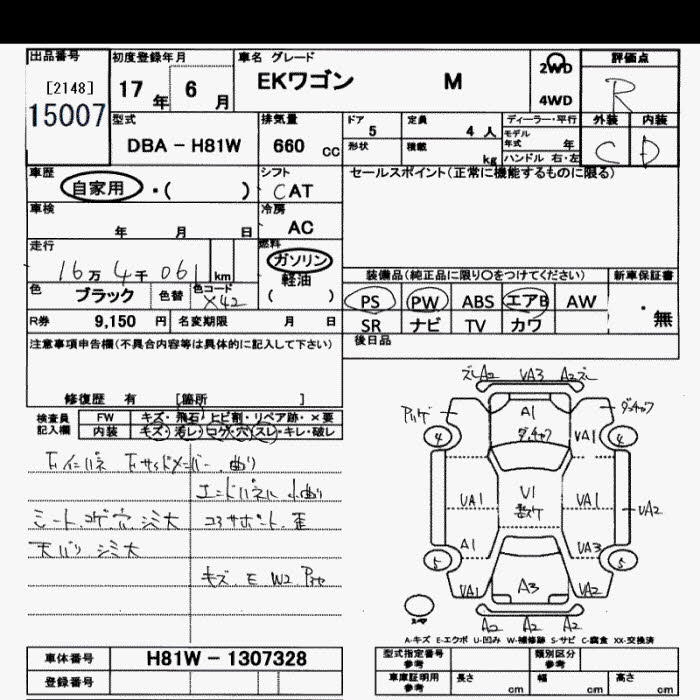 出品番号 初度登録年月 車名 グレード 評価点
[2148] 17 年 6 月 EKワゴン M 2WD R
15007 4WD
型式 排気量 ドア 5 定員 4 人 ディーラー・平行 外装 内装
DBA - H81W 660 cc 形状 積載 kg モデル年式 年 C D
ハンドル 右・左
車歴 シフト セールスポイント(正常に機能するものに限る)
自家用 ・( ) CAT
車検 冷房
年 月 日 AC
走行 燃料
16万 4千 061 km ガソリン 装備品(純正品に限り○をつけてください) 新車保証書
軽油
色 ブラック 色替 色コード X42 ( ) PS PW ABS エアB AW ・無
R券 9,150 円 名変期限 月 日 SR ナビ TV カワ
注意事項申告欄(不具合内容等は具体的に記入して下さい) 後日品
修復歴 有 [箇所 ]
検査員 FW キズ・飛石・ヒビ割・リペア跡・×要
記入欄 内装 キズ・汚レ・コゲ・穴・スレ・キレ・破レ
曲り
シート コゲ 穴 シミ大 コアサポート 歪
天バリ シミ大
キズ E W2
A2 VA3 A2
A1
4 VA1 4
VA1 U1 VA1 VA2
A1 VA3
5 5
VA1 A3 VA2
A2 A2 A2
A-キズ E-エクボ U-凹み W-補修跡 S-サビ C-腐食 XX-交換済
車体番号 H81W - 1307328 型式指定番号 参考 類別区分 参考
登録番号 車庫証明用 参考 長さ cm 幅 cm 高さ cm